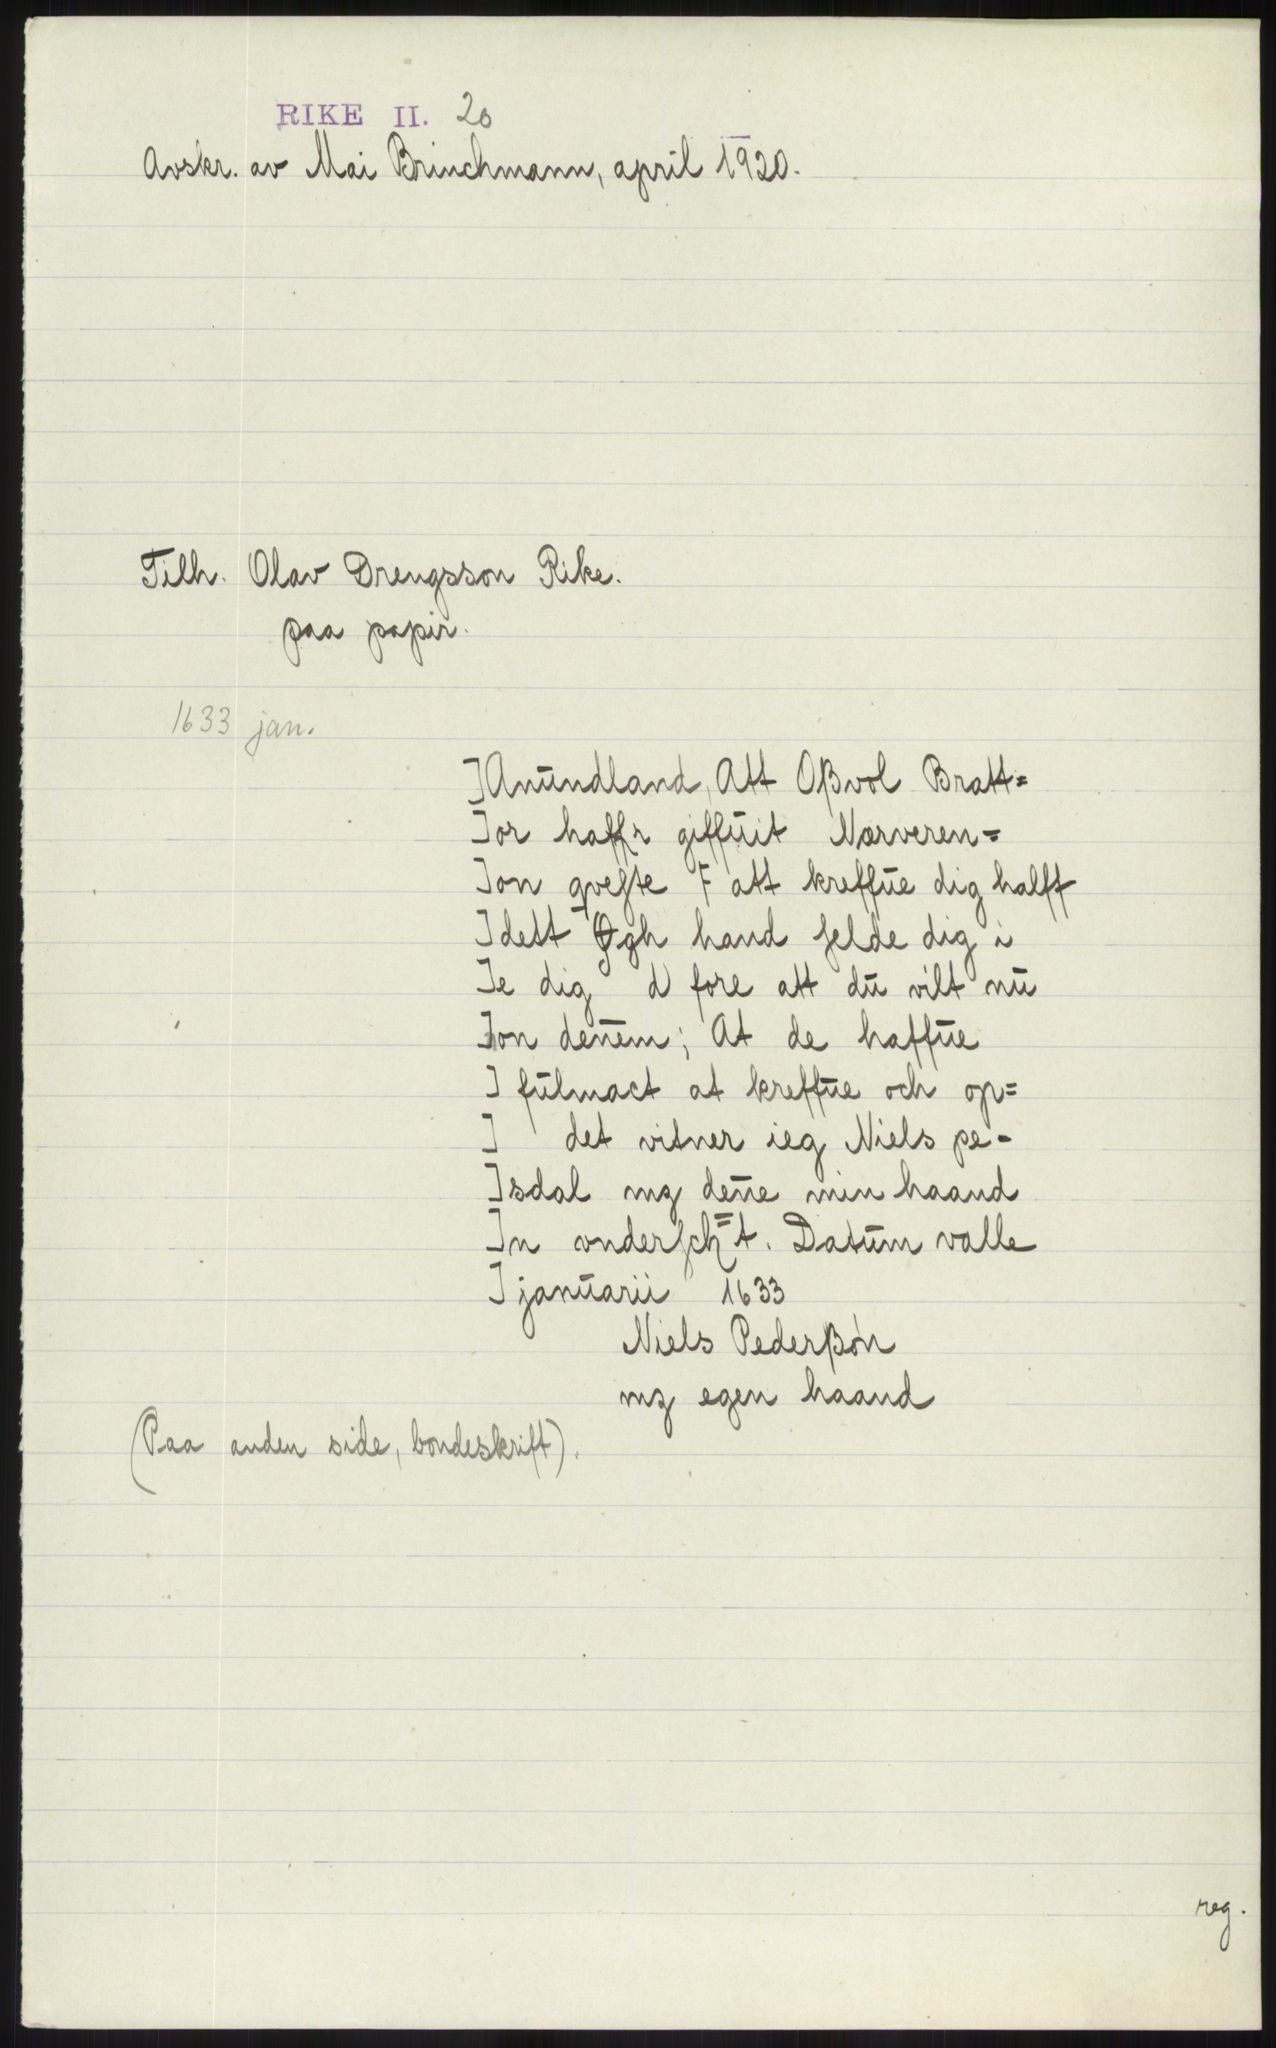 RIKE II. 20
Avskr. av Mai Brinchmann, april 1920.
Tilh. Olav Drengsson Rike.
paa papir.
1633 jan.
]Anūndland, Att Oβvol Bratt=
]or haffr giffūit Nærveren=
]on qveſte F att kreffūe dig halft
]dett Ogh hand ſelde dig i
]e dig d fore att dū vilt nū
]on denēm; At de haffūe
] fūlmact at kreffūe och op=
] det vitner ieg Niels pe-
]sdal mz deñe min haand
]n vnderſch=t. Datūm valle
] janūarii 1633
Niels Pederβøn
mz egen haand
(Paa anden side, bondeskrift).
reg.